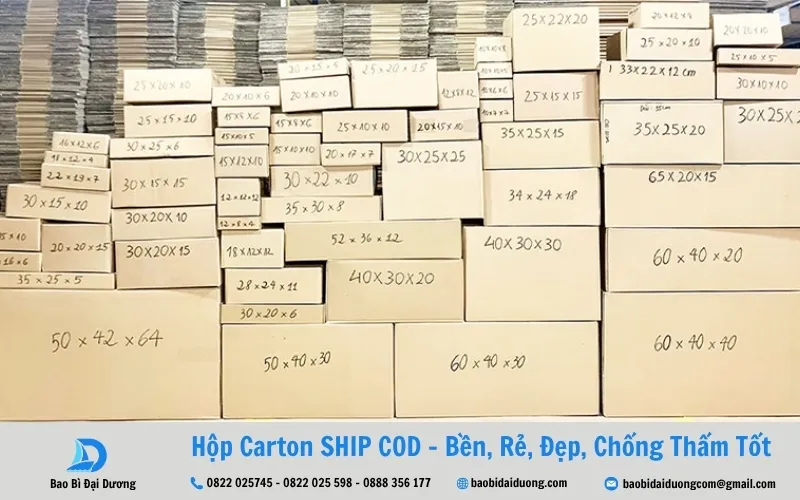 25×22×20
20×12×9
20×20×10
25×20×10
15×10×8
25×10×5
20×15×5
25×20×15
33×22×12 cm
25×20×10
20×10×6
20×10×10
12×8×12
30×10×10
25×15×15
15×8×6
15×8×6
25×15×10
25×10×10
20×15×10
35×25×15
35×25×20
30×25×2
15×10×5
16×12×6
30×25×6
15×12×10
15×10×10
20×17×7
30×25×25
18×12×4
22×19×7
30×15×15
30×22×10
65×20×15
12×12×12
34×24×18
30×15×10
35×30×8
30×20×10
12×8×4
15×10
20×20×15
30×20×15
18×12×12
52×36×12
40×30×30
60×40×20
16×6
35×25×5
28×24×11
40×30×20
30×20×6
50×42×64
50×40×30
60×40×30
60×40×40
Hộp Carton SHIP COD - Bền, Rẻ, Đẹp, Chống Thấm Tốt
Bao Bì Đại Dương
0822 025745 - 0822 025 598 - 0888 356 177
baobidaiduong.com
baobidaiduongcom@gmail.com